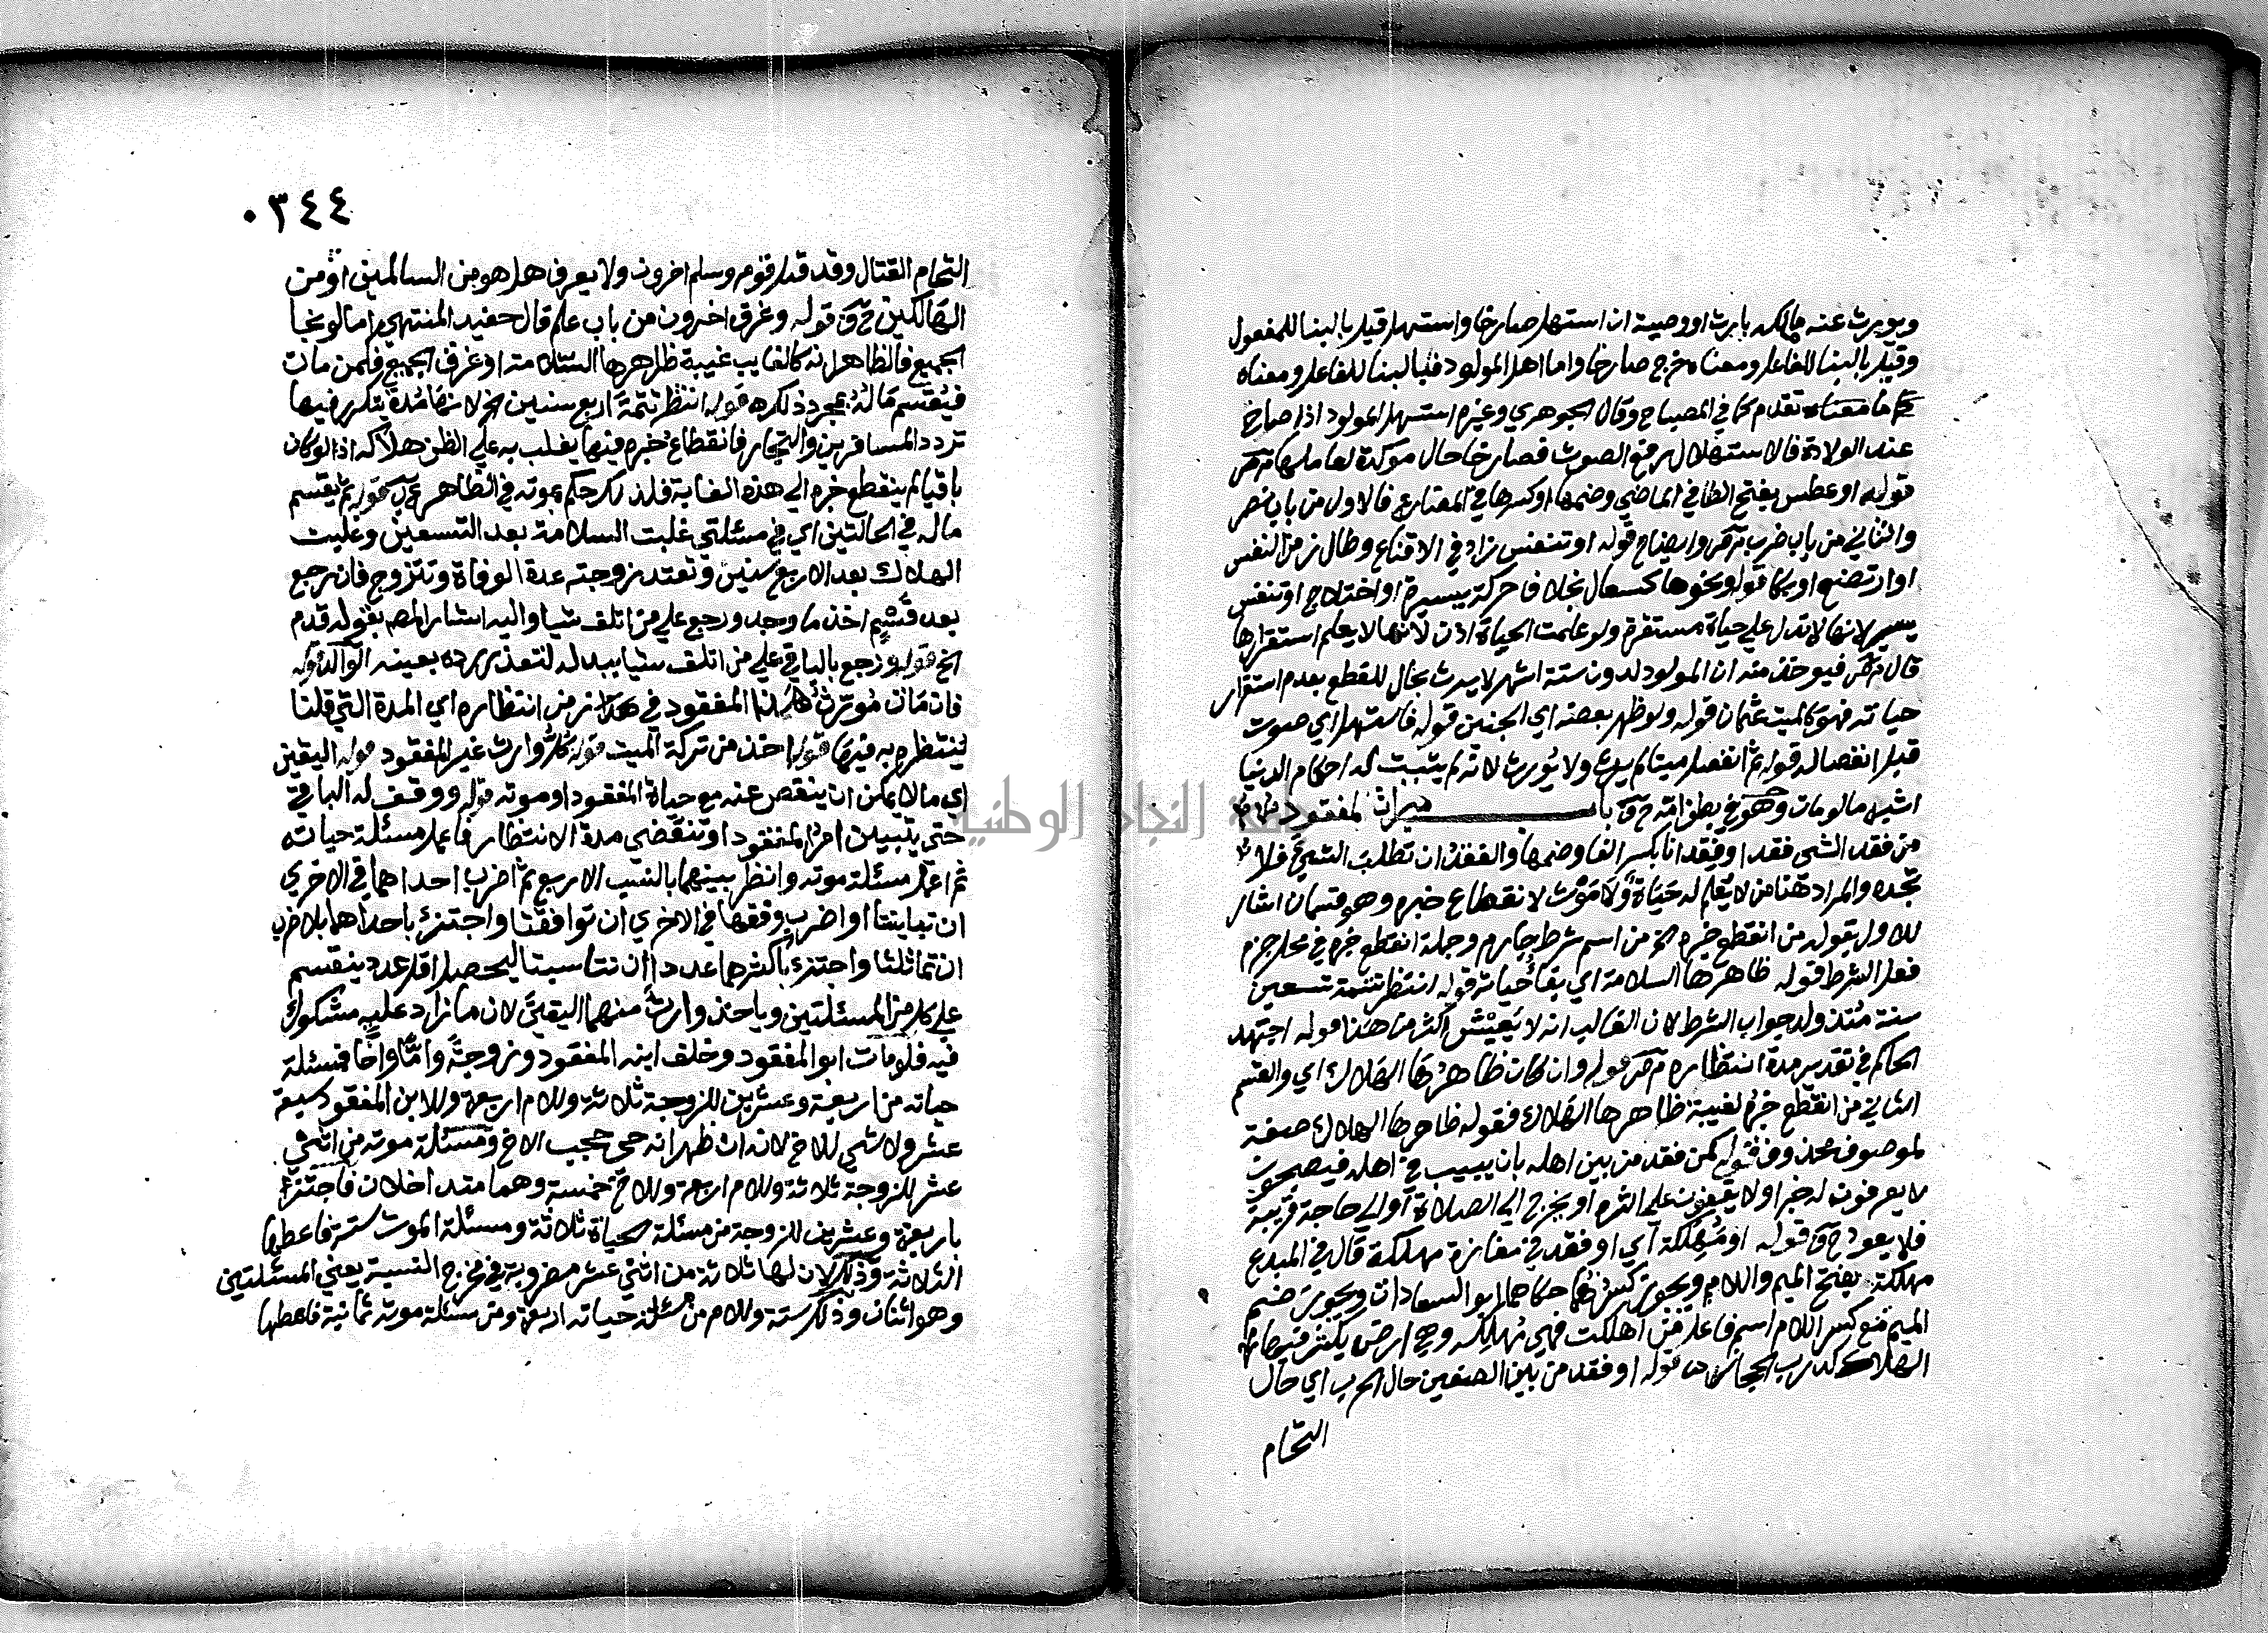 ويورث عنه ما ملكه بارث او وصية ان استهل صارخا واستهل قيل بالبنا للمفعول
وقيل بالبنا للفاعل ومعناه خرج صارخا واما اهل المولود فبالبنا للفاعل ومعناه
ما معناه تقدم كما في المصباح وقال الجوهري وغيره استهل المولود اذا صاح
عند الولادة فالاستهلال رفع الصوت فصارخا حال موكدة لعاملها م ص
قوله او عطس بفتح الطا في الماضي وضمها او كسرها في المضارع فالاول من باب نصر
والثاني من باب ضرب م ص وايضاح قوله او تنفس زاد في الاقناع وطال زمن النفس
او ارتضع او بكا قوله ونحوها كسعال بخلاف حركة يسيرة او اختلاج او تنفس
يسير لانها لاتدل علي حياة مستقرة ولو علمت الحياة اذن لانها لا يعلم استقرارها
قال م ص فيوخذ منه ان المولود لدون ستة اشهر لا يرث بحال للقطع بعدم استقرار
حياته فهو كالميت عثمان قوله ولو ظهر بعضه اي الجنين قوله فاستهل اي صوت
قبل انفصاله قوله ثم انفصل ميتا لم يرث ولا يورث لانه لم يثبت له احكام الدنيا
اشبه ما لو مات وهو في بطن امه ح ق باب ميراث المفقود
من فقد الشي فقدا وفقدانا بكسر الفا وضمها والفقد ان تطلب الشي فلا
تجده والمراد هنا من لا تعلم له حياة ولا موت لانقطاع خبره وهو قسمان اشار
للاول بقوله من انقطع خبره الخ من اسم شرط جازم وجملة انقطع خبره في محل جزم
فعل الشرط قوله ظاهرها السلامة اي بقا حياته قوله انتظر تتمة تسعين
سنة منذ ولد جواب الشرط لان الغالب انه لا يعيش اكثر من هذا قوله اجتهد
الحاكم في تقدير مدة انتظاره م ص قوله وان كان ظاهرها الهلاك اي والقسم
الثاني من انقطع خبره لغيبة ظاهرها الهلاك فقوله ظاهرها الهلاك صفة
لموصوف محذوف قوله كمن فقد من بين اهله بان يبيت في اهله فيصبحون
لا يعرفون له خبرا ولا يقفون علي اثره او يخرج الي الصلاة او الي حاجة قريبة
فلا يعود ح ق قوله او مهلكة اي او فقد في مفازة مهلكة قال في المبدع
مهلكة بفتح الميم واللام ويجوز كسرهما حكاهما ابو السعادات ويجوز ضم
الميم مع كسر اللام اسم فاعل من اهلكت فهي مهلكه وهي ارض يكثر فيها
الهلاك كدرب الحجاز قوله او فقد من بين الصفين حال الحرب اي حال
التحام
٠٣٤٤
التحام القتال وقد قتل قوم وسلم اخرون ولا يعرف هل هو من السالمين او من
الهالكين ح ق قوله وغرق اخرون من باب علم قال حفيد المنتهي اما لو نجا
الجميع فالظاهر انه كالغايب غيبة ظاهرها السلامة او غرق الجميع فكمن مات
فيقسم ماله بمجرد ذلك قوله انتظر تتمة اربع سنين الخ لانها مدة يتكرر فيها
تردد المسافرين والتجار فانقطاع خبره فيها يغلب به علي الظن هلاكه اذ لو كان
باقيا لم ينقطع خبره الي هذه الغاية فلذلك حكم بموته في الظاهر قوله ثم يقسم
ماله في الحالتين اي في مسئلتي غلبت السلامة بعد التسعين وغلبت
الهلاك بعد الاربع سنين وتعتد زوجته عدة الوفاة وتتزوج فان رجع
بعد قسم اخذ ما وجد ورجع علي من اتلف شيا واليه اشار المص بقوله قدم
الخ قوله ورجع بالباقي علي من اتلف شيا ببدله لتعذر رده بعينه قوله
فان مات مورث هذا المفقود في زمن انتظاره اي المدة التي قلنا
ينتظر به فيها قوله اخذ من تركة الميت قوله كل وارث غير المفقود قوله اليقين
اي ما لا يمكن ان ينقص عنه مع حياة المفقود او موته قوله ووقف له الباقي
حتي يتبين امر المفقود او تنقضي مدة الانتظار فاعمل مسئلة حياته
ثم اعمل مسئلة موته وانظر بينهما بالنسب الاربع ثم اضرب احداهما في الاخري
ان تباينتا او اضرب وفقها في الاخري ان توافقتا واجتزئ باحداهما بلا ضرب
ان تماثلتا واجتزئ باكثرهما عددا ان تناسبتا ليحصل اقل عدد ينقسم
علي كل من المسئلتين وياخذ وارث منهما اليقين لان ما زاد عليه مشكوك
فيه فلو مات ابو المفقود وخلف ابنه المفقود وزوجة واما واخا فمسئلة
حياته من اربعة وعشرين للزوجة ثلاثة وللام اربعة وللابن المفقود سبعة
عشر ولا شي للاخ لانه ان ظهر انه حي حجب الاخ ومسئلة موته من اثني
عشر للزوجة ثلاثة وللام اربعة وللاخ خمسة وهما متداخلان فاجتزئ
باربعة وعشرين للزوجة من مسئلة الحياة ثلاثة ومسئلة الموت ستة فاعطها
الثلاثة وذلك لان لها ثلاثة من اثني عشر مضروبة في مخرج النسبة يعني المسئلتين
وهو اثنان وذلك ستة وللام من مسئلة حياته اربعة ومن مسئلة موته ثمانية فاعطها
جامعة النجاح الوطنية